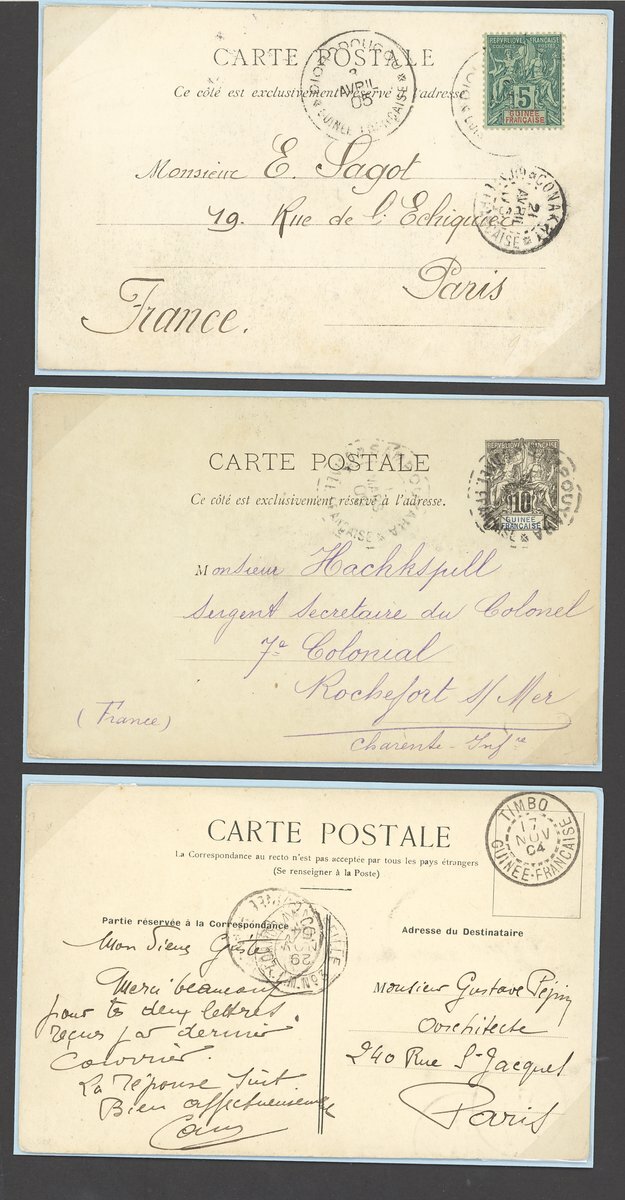 CARTE POSTALE
Ce côté est exclusivement réservé à l'adresse
AVRIL
05
GUINÉE FRANÇAISE
RÉPUBLIQUE FRANÇAISE
COLONIES POSTES
5
GUINÉE
FRANÇAISE
CONAKRY
21
AVRIL
Monsieur E. Sagot
19. Rue de l'Echiquier
Paris
France.
CARTE POSTALE
Ce côté est exclusivement réservé à l'adresse.
RÉPUBLIQUE FRANÇAISE
10
GUINÉE
FRANÇAISE
Monsieur Hachkspill
Sergent Secretaire du Colonel
7e Colonial
Rochefort s/ Mer
(France)
Charente-Infre
TIMBO
17
NOV
04
GUINÉE-FRANÇAISE
CARTE POSTALE
La Correspondance au recto n'est pas acceptée par tous les pays étrangers
(Se renseigner à la Poste)
Partie réservée à la Correspondance
Adresse du Destinataire
Mon Vieux
Merci beaucoup
pour tes deux lettres
reçues par dernier
Courrier.
La réponse suit
Bien affectueusement
Monsieur Gustave Pépin
Architecte
240 Rue St-Jacques
Paris